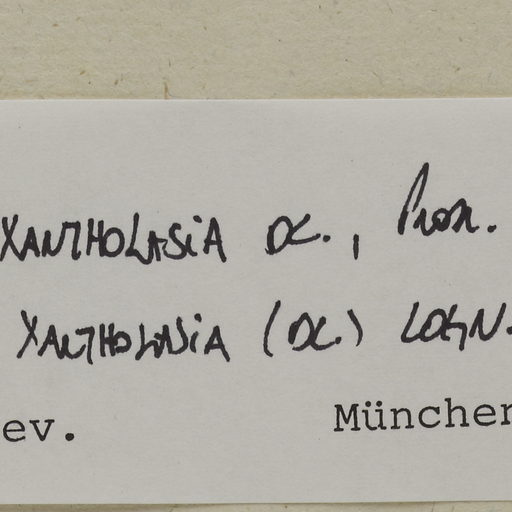 XANTHOLASIA DC., Prodr.
XANTHOLASIA (DC.) COGN.
ev. München